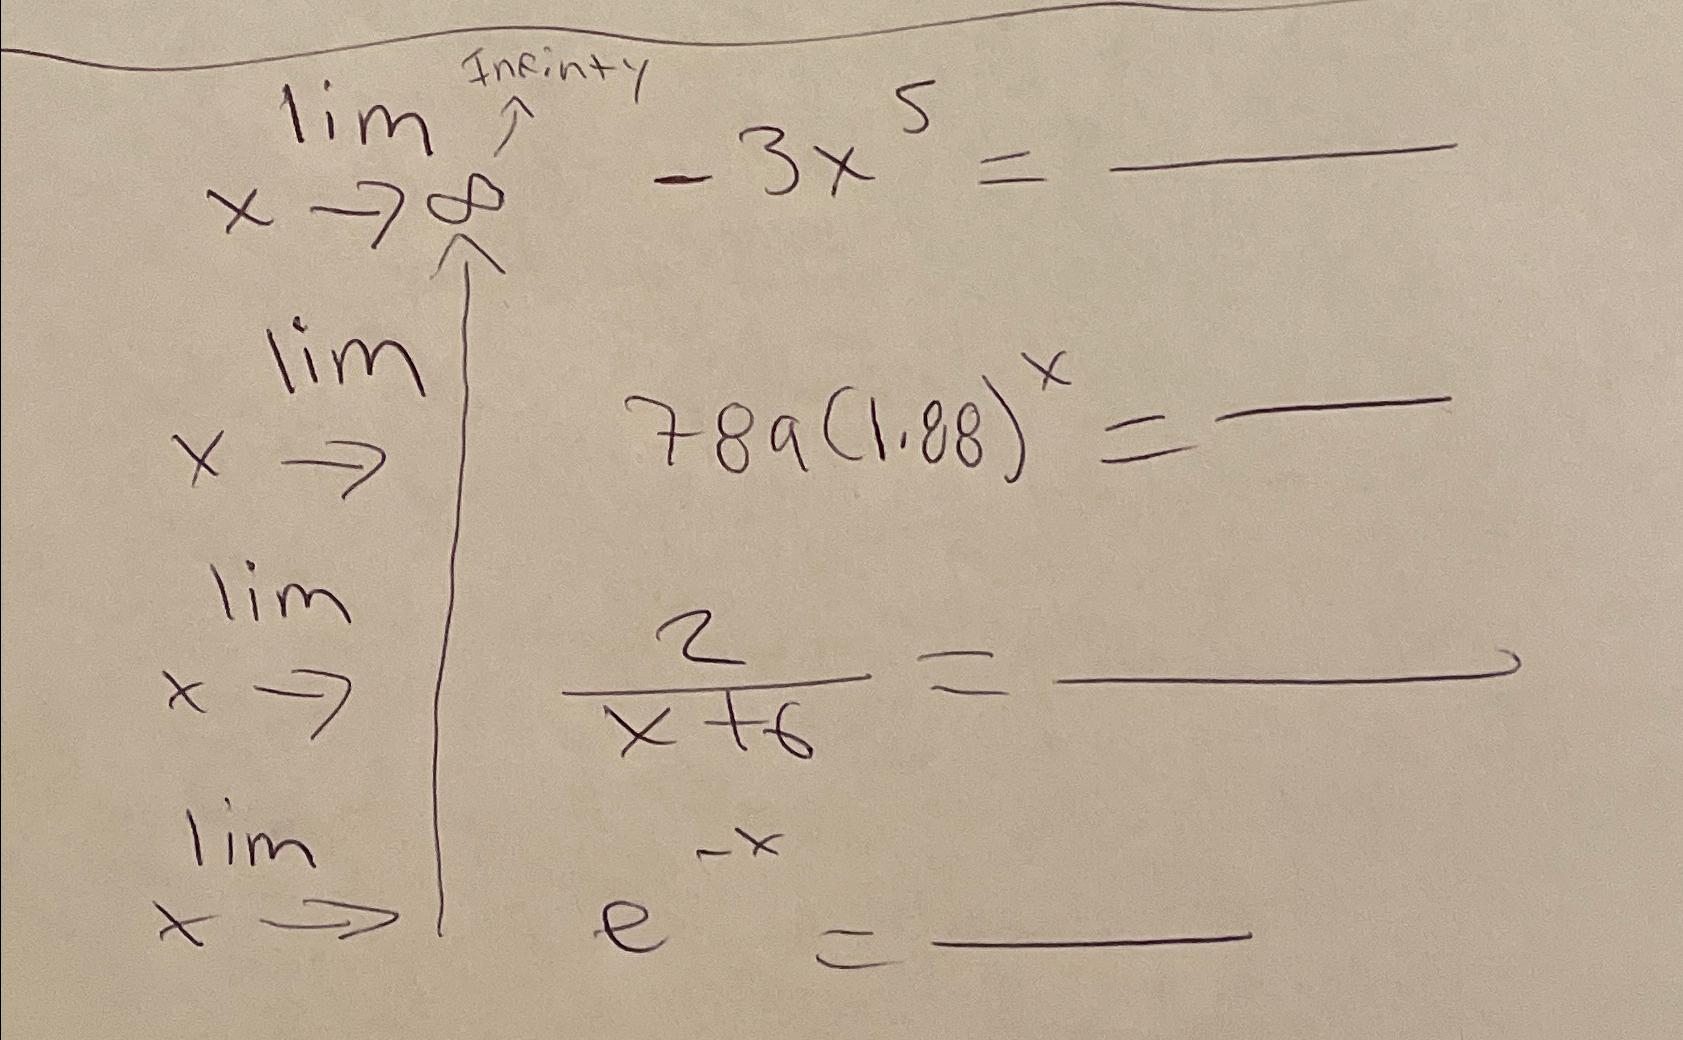 Infinty
lim
x → ∞ - 3x⁵ = ____
lim
x → 789(1.88)ˣ = ____
lim
x → 2/(x+6) = ____
lim
x → e⁻ˣ = ____